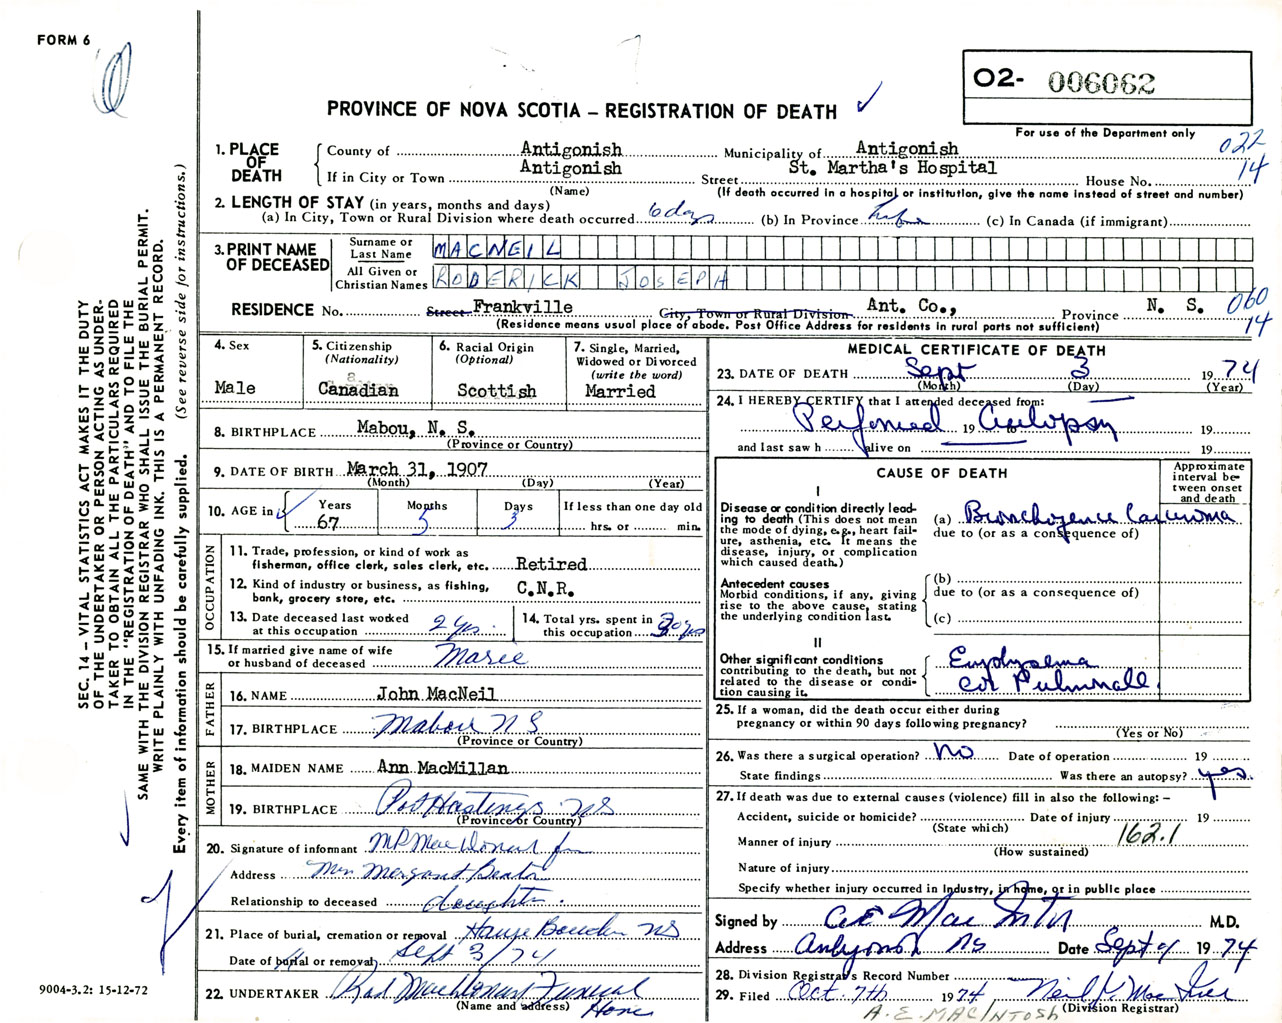 FORM 6
O2- 006062
PROVINCE OF NOVA SCOTIA – REGISTRATION OF DEATH
For use of the Department only
022
14
1. PLACE OF DEATH
County of Antigonish Municipality of Antigonish
If in City or Town Antigonish Street St. Martha's Hospital House No.
(Name) (If death occurred in a hospital or institution, give the name instead of street and number)
2. LENGTH OF STAY (in years, months and days)
(a) In City, Town or Rural Division where death occurred 6 days (b) In Province life (c) In Canada (if immigrant)
3. PRINT NAME OF DECEASED
Surname or Last Name MACNEIL
All Given or Christian Names RODERICK JOSEPH
RESIDENCE No. Street Frankville City, Town or Rural Division Ant. Co., Province N. S. 060
14
(Residence means usual place of abode. Post Office Address for residents in rural parts not sufficient)
4. Sex
Male
5. Citizenship
(Nationality)
Canadian
6. Racial Origin
(Optional)
Scottish
7. Single, Married, Widowed or Divorced
(write the word)
Married
8. BIRTHPLACE Mabou, N. S.
(Province or Country)
9. DATE OF BIRTH March 31, 1907
(Month) (Day) (Year)
10. AGE in
Years Months Days If less than one day old
67 5 3 hrs. or min.
OCCUPATION
11. Trade, profession, or kind of work as fisherman, office clerk, sales clerk, etc. Retired
12. Kind of industry or business, as fishing, bank, grocery store, etc. C.N.R.
13. Date deceased last worked at this occupation 2 yrs.
14. Total yrs. spent in this occupation 30 yrs
15. If married give name of wife or husband of deceased Marie
FATHER
16. NAME John MacNeil
17. BIRTHPLACE Mabou NS
(Province or Country)
MOTHER
18. MAIDEN NAME Ann MacMillan
19. BIRTHPLACE Port Hastings NS
(Province or Country)
20. Signature of informant
Address Mrs Margaret Beaton
Relationship to deceased daughter.
21. Place of burial, cremation or removal NS
Date of burial or removal Sept 3/74
22. UNDERTAKER Funeral Home
(Name and address)
MEDICAL CERTIFICATE OF DEATH
23. DATE OF DEATH Sept 3 1974
(Month) (Day) (Year)
24. I HEREBY CERTIFY that I attended deceased from:
Performed 19 to Autopsy 19
and last saw h alive on 19
CAUSE OF DEATH
Approximate interval between onset and death
I
Disease or condition directly leading to death (This does not mean the mode of dying, e.g., heart failure, asthenia, etc. It means the disease, injury, or complication which caused death.)
(a) Bronchogenic Carcinoma
due to (or as a consequence of)
Antecedent causes
Morbid conditions, if any, giving rise to the above cause, stating the underlying condition last.
(b)
due to (or as a consequence of)
(c)
II
Other significant conditions contributing to the death, but not related to the disease or condition causing it.
Emphysema
cor Pulmonale
25. If a woman, did the death occur either during pregnancy or within 90 days following pregnancy?
(Yes or No)
26. Was there a surgical operation? No Date of operation 19
State findings Was there an autopsy? yes
27. If death was due to external causes (violence) fill in also the following: –
Accident, suicide or homicide? Date of injury 19
(State which)
Manner of injury 162.1
(How sustained)
Nature of injury
Specify whether injury occurred in industry, in home, or in public place
Signed by M.D.
Address Antigonish NS Date Sept 9 1974
28. Division Registrar's Record Number
29. Filed Oct. 7th 1974
(Division Registrar)
A. E. MACINTOSH
SEC. 14 – VITAL STATISTICS ACT MAKES IT THE DUTY
OF THE UNDERTAKER OR PERSON ACTING AS UNDER-
TAKER TO OBTAIN ALL THE PARTICULARS REQUIRED
IN THE "REGISTRATION OF DEATH" AND TO FILE THE
SAME WITH THE DIVISION REGISTRAR WHO SHALL ISSUE THE BURIAL PERMIT.
WRITE PLAINLY WITH UNFADING INK. THIS IS A PERMANENT RECORD.
Every item of information should be carefully supplied. (See reverse side for instructions.)
9004-3.2: 15-12-72